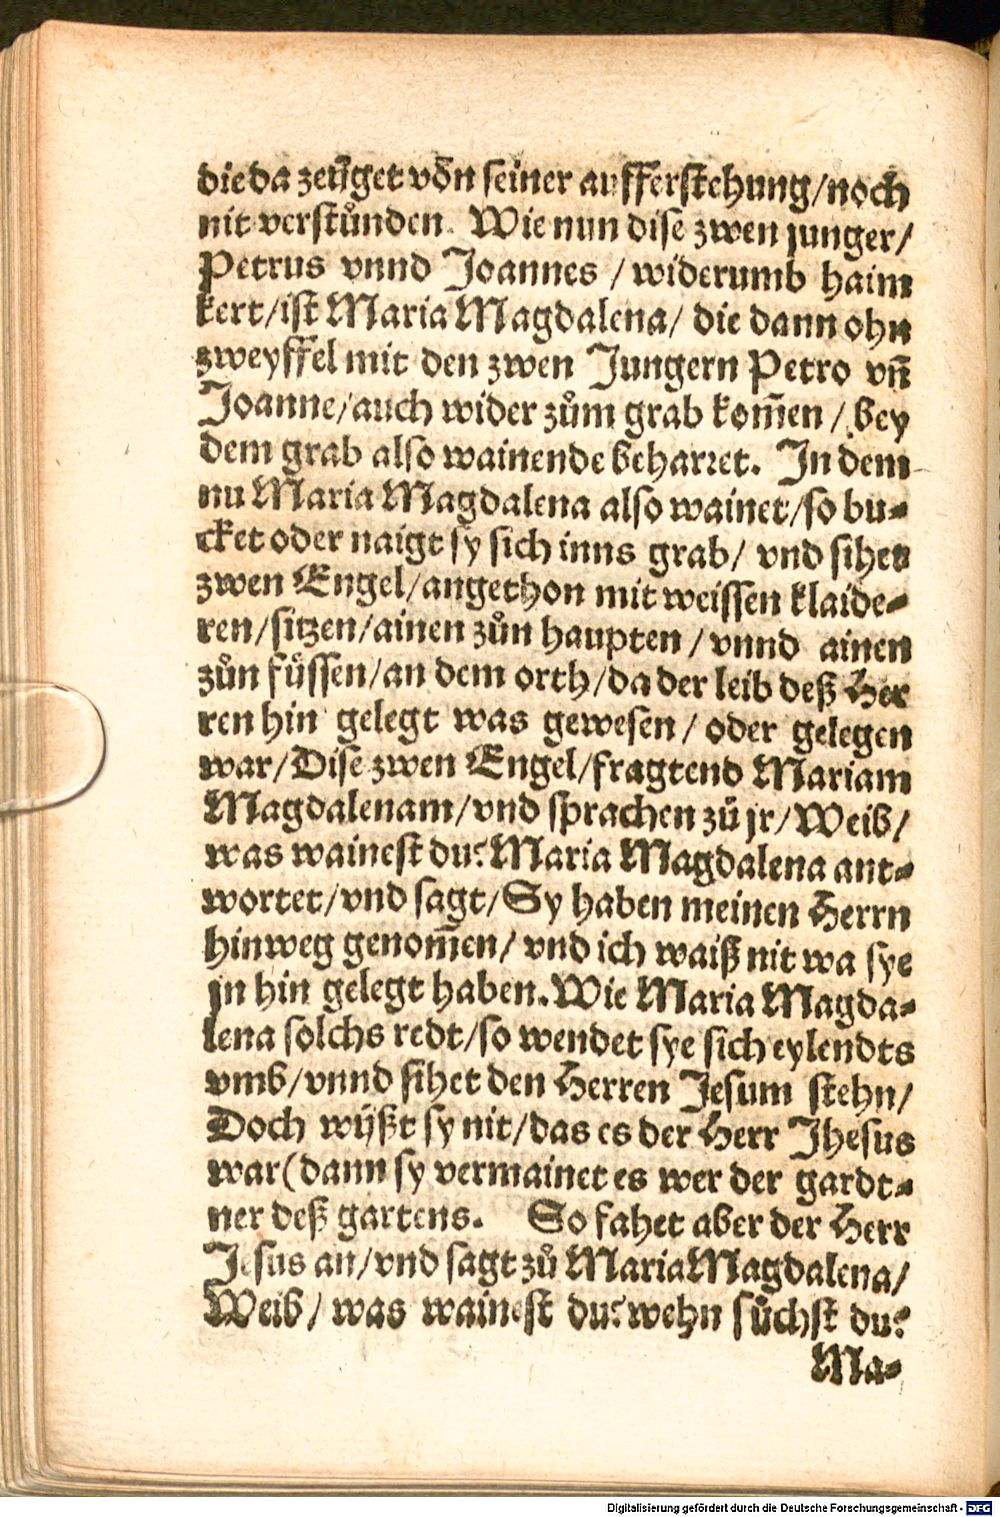 die da zeüget von seiner aufferstehung/noch
nit verstůnden. Wie nun dise zwen junger/
Petrus vnnd Joannes / widerumb haim
kert/ist Maria Magdalena/ die dann ohn
zweyffel mit den zwen Jungern Petro vñ
Joanne/auch wider zům grab kom̃en / bey
dem grab also wainende beharret. In dem
nu Maria Magdalena also wainet/so bu-
cket oder naigt sy sich inns grab/ vnd sihet
zwen Engel/angethon mit weissen klaide-
ren/sitzen/ainen zůn haupten / vnnd ainen
zůn füssen/an dem orth/da der leib deß Her
ren hin gelegt was gewesen/ oder gelegen
war/Dise zwen Engel/fragtend Mariam
Magdalenam/vnd sprachen zů jr/Weib/
was wainest du? Maria Magdalena ant-
wortet/vnd sagt/Sy haben meinen Herrn
hinweg genom̃en/ vnd ich waiß nit wa sye
jn hin gelegt haben. Wie Maria Magda-
lena solchs redt/so wendet sye sich eylendts
vmb/vnnd sihet den Herren Jesum stehn/
Doch wÿßt sy nit/das es der Herr Jhesus
war(dann sy vermainet es wer der gardt-
ner deß gartens. So fahet aber der Herr
Jesus an/vnd sagt zů Maria Magdalena/
Weib/ was wainest du? wehn sůchst du?
Ma-
Digitalisierung gefördert durch die Deutsche Forschungsgemeinschaft - DFG